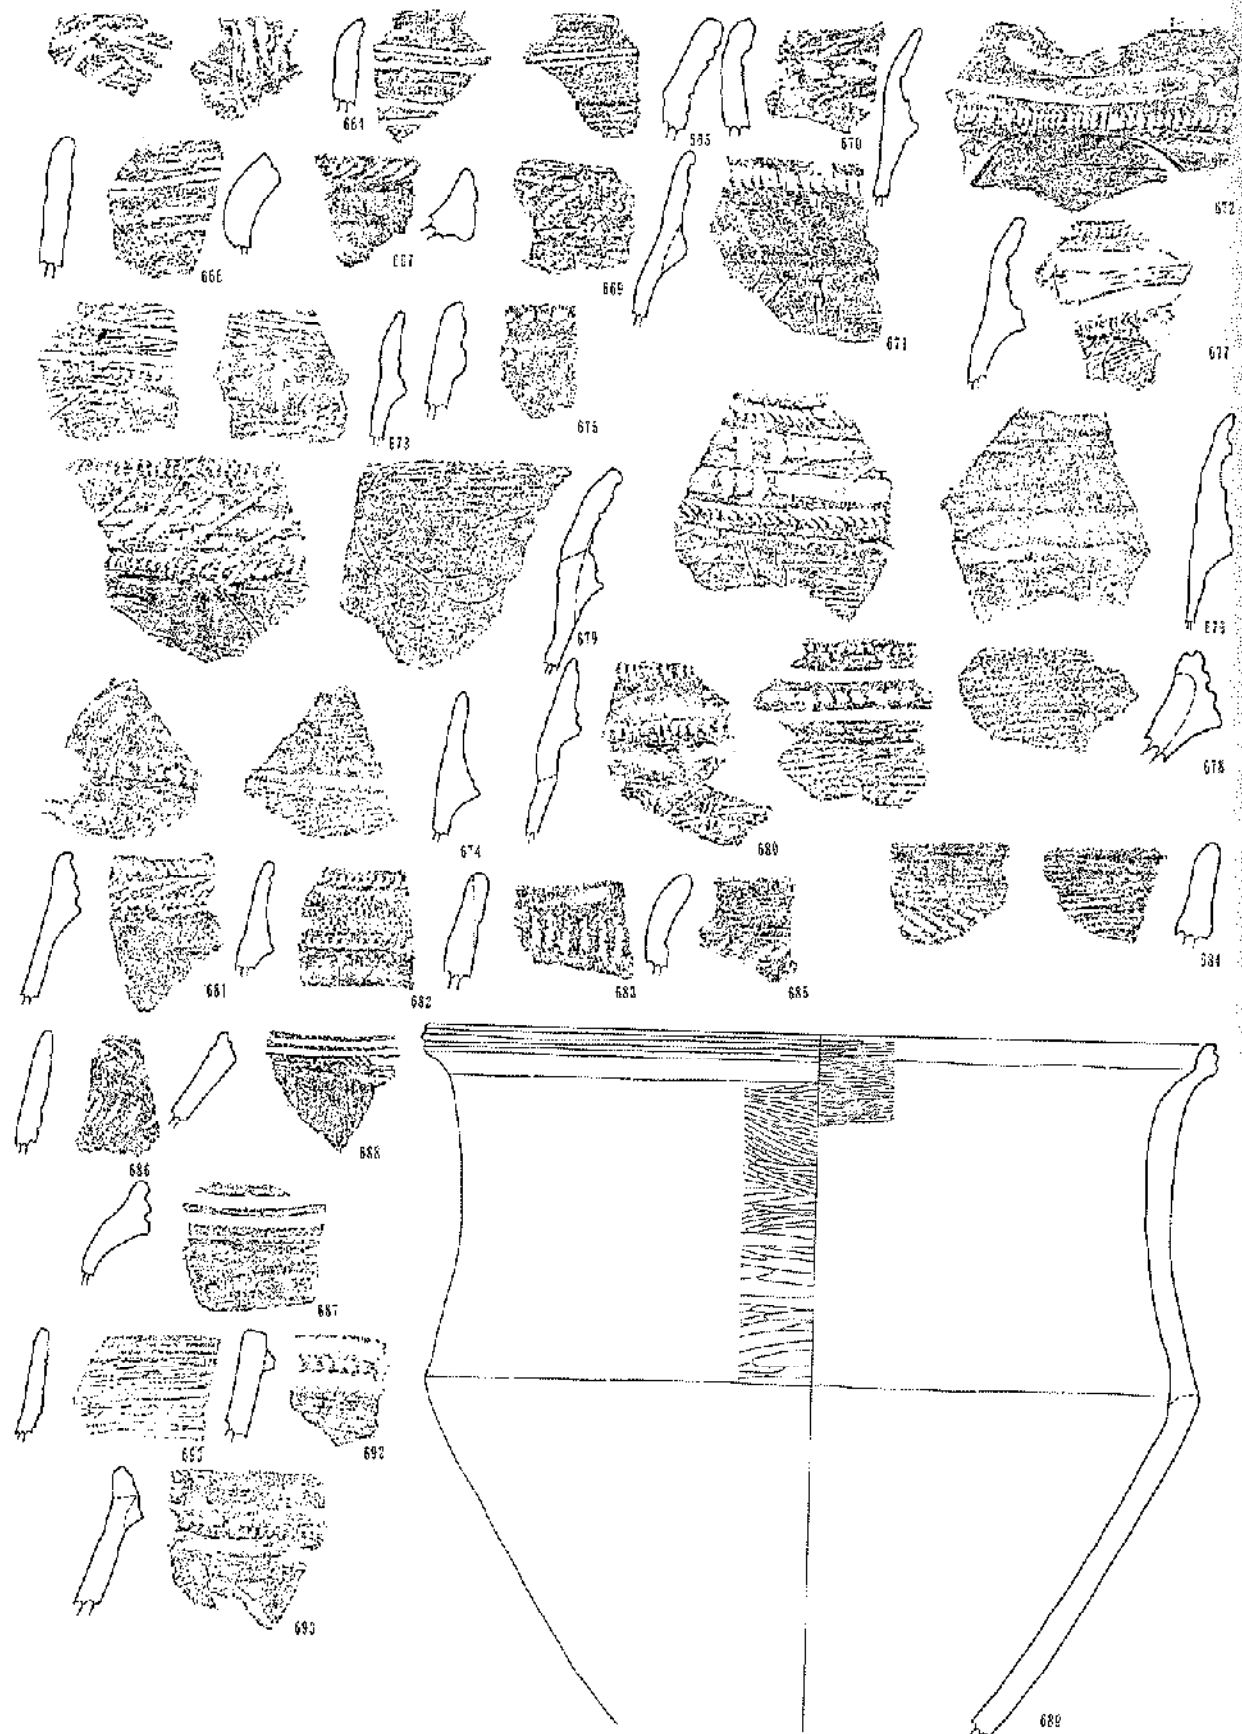 664
665
670
672
666
667
669
671
677
673
675
679
676
674
680
678
681
682
683
685
684
686
688
687
692
693
689